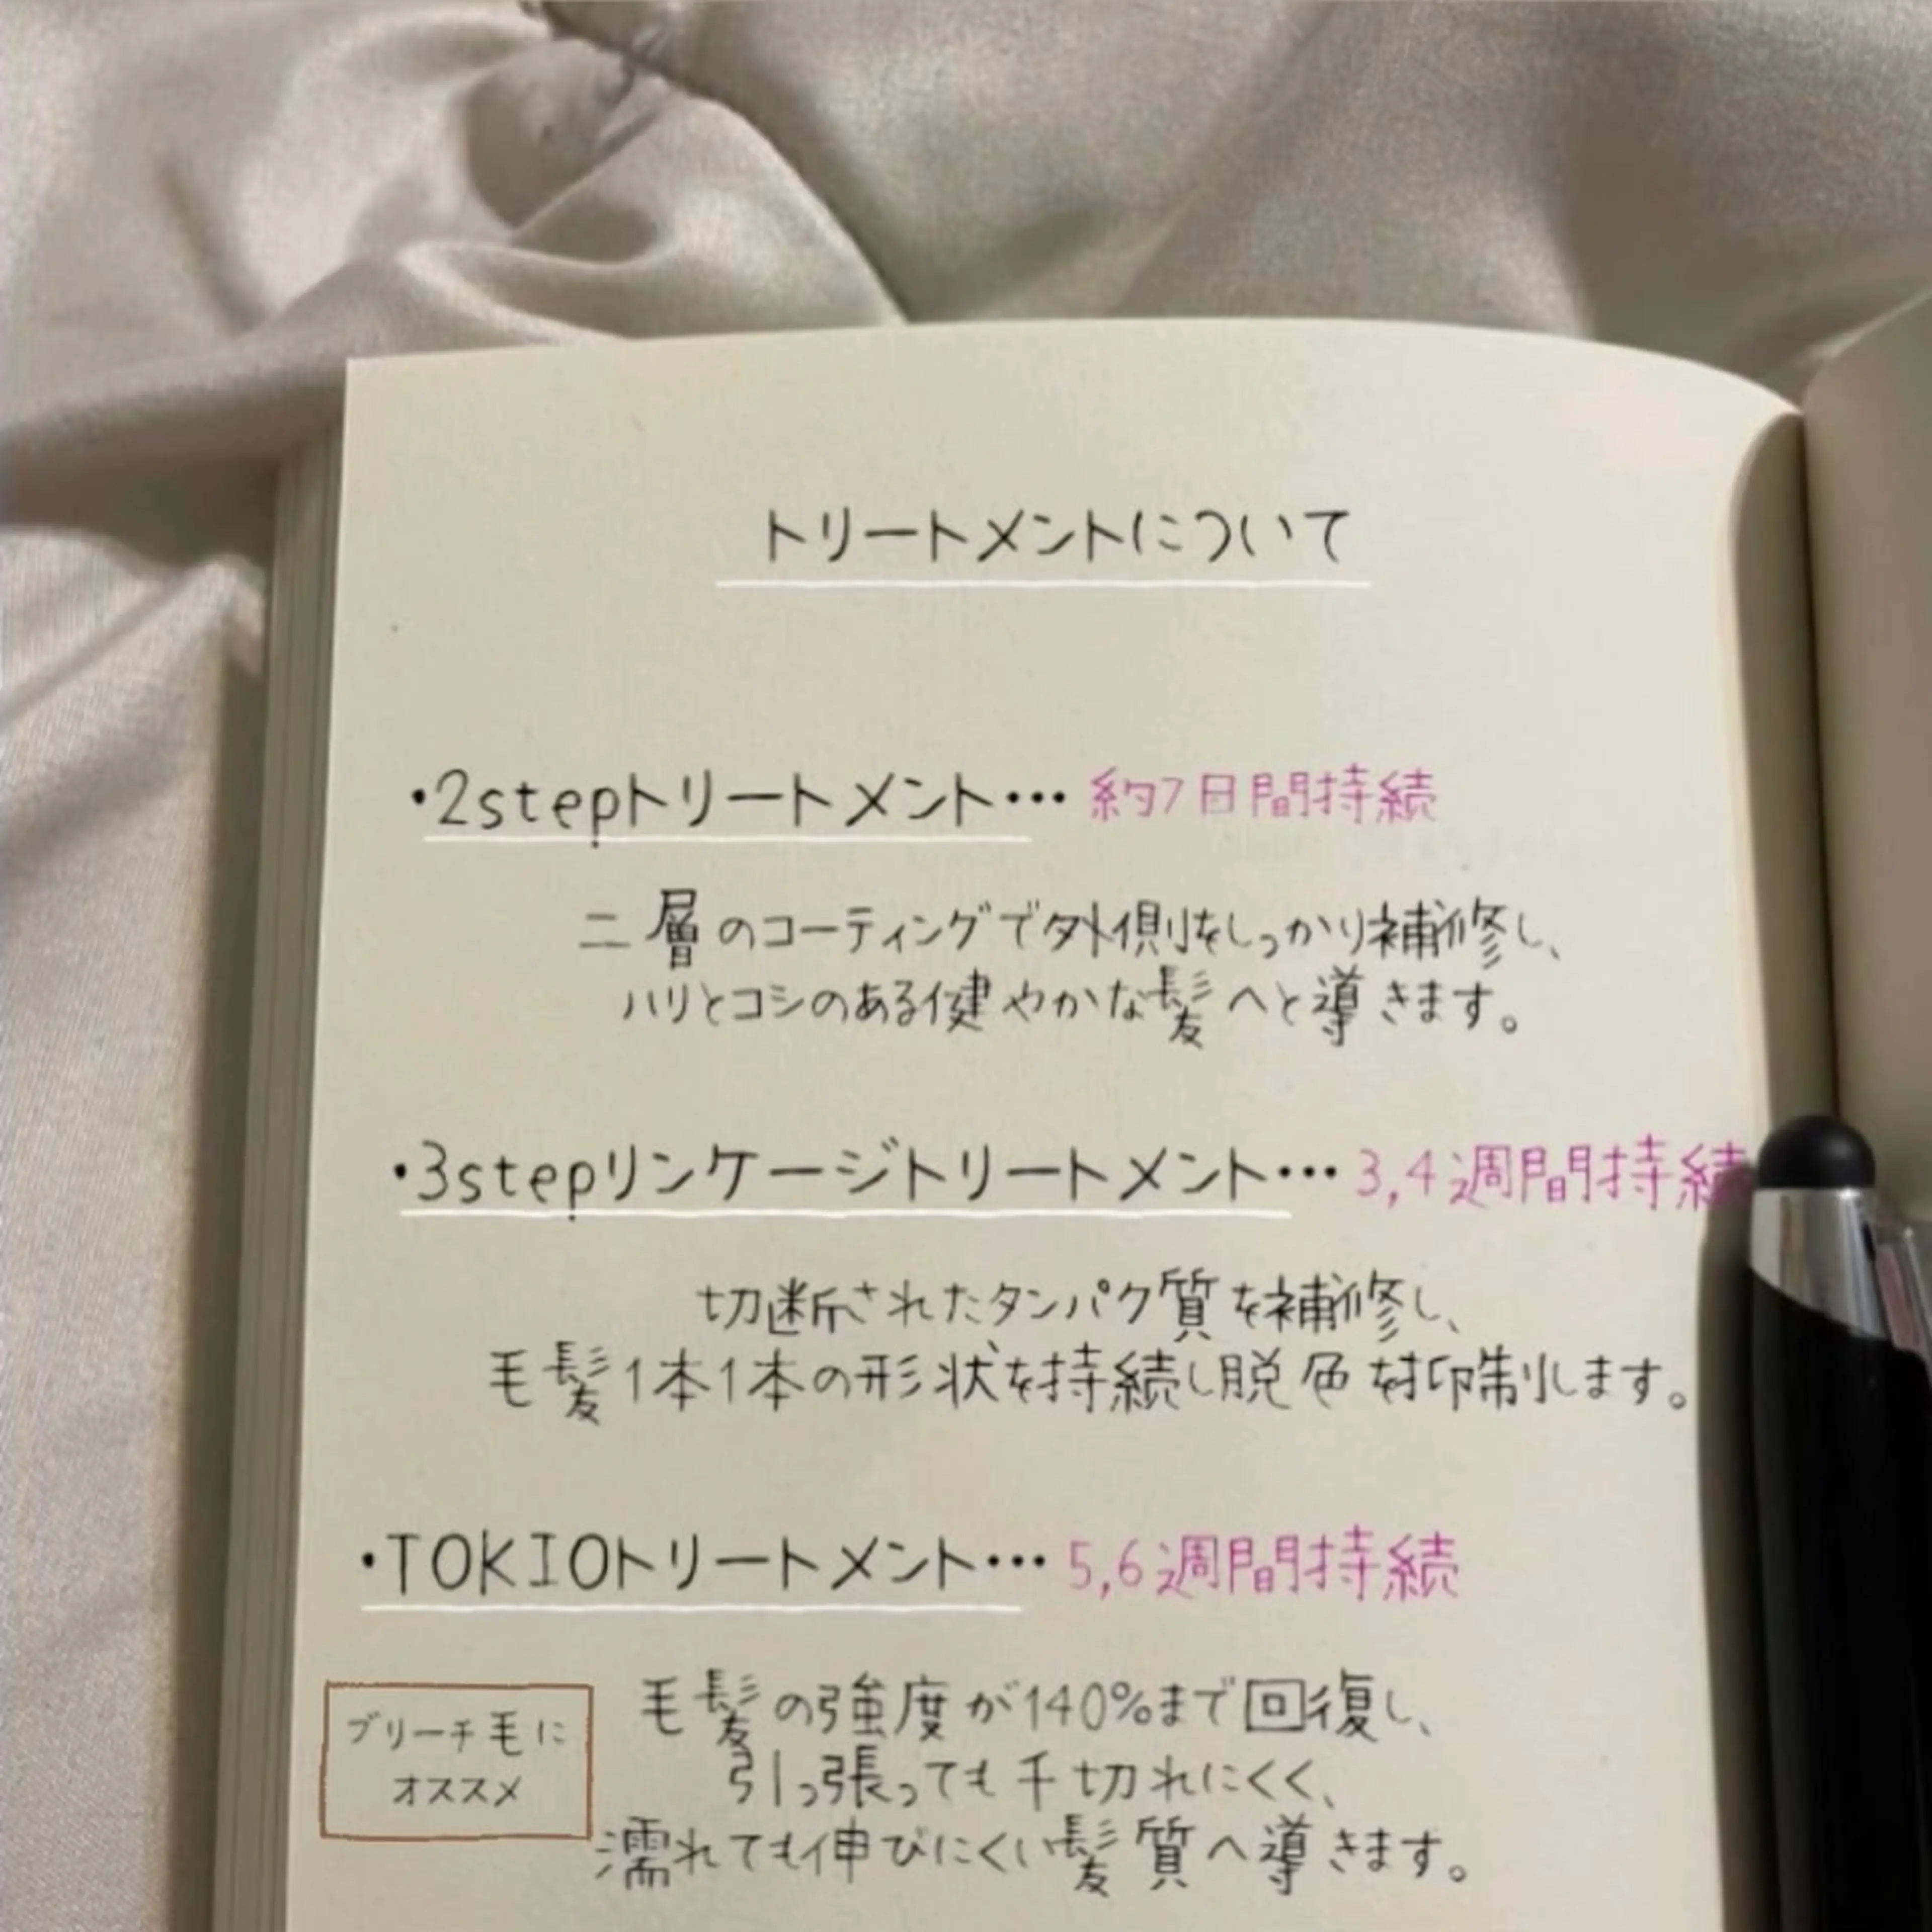 トリートメントについて
・2stepトリートメント・・・ 約7日間持続
二層のコーティングで外側をしっかり補修し、
ハリとコシのある健やかな髪へと導きます。
・3stepリンケージトリートメント・・・ 3,4週間持続
切断されたタンパク質を補修し、
毛髪1本1本の形状を持続し脱色を抑制します。
・TOKIOトリートメント・・・ 5,6週間持続
ブリーチ毛に
オススメ
毛髪の強度が140%まで回復し、
引っ張っても千切れにくく、
濡れても伸びにくい髪質へ導きます。